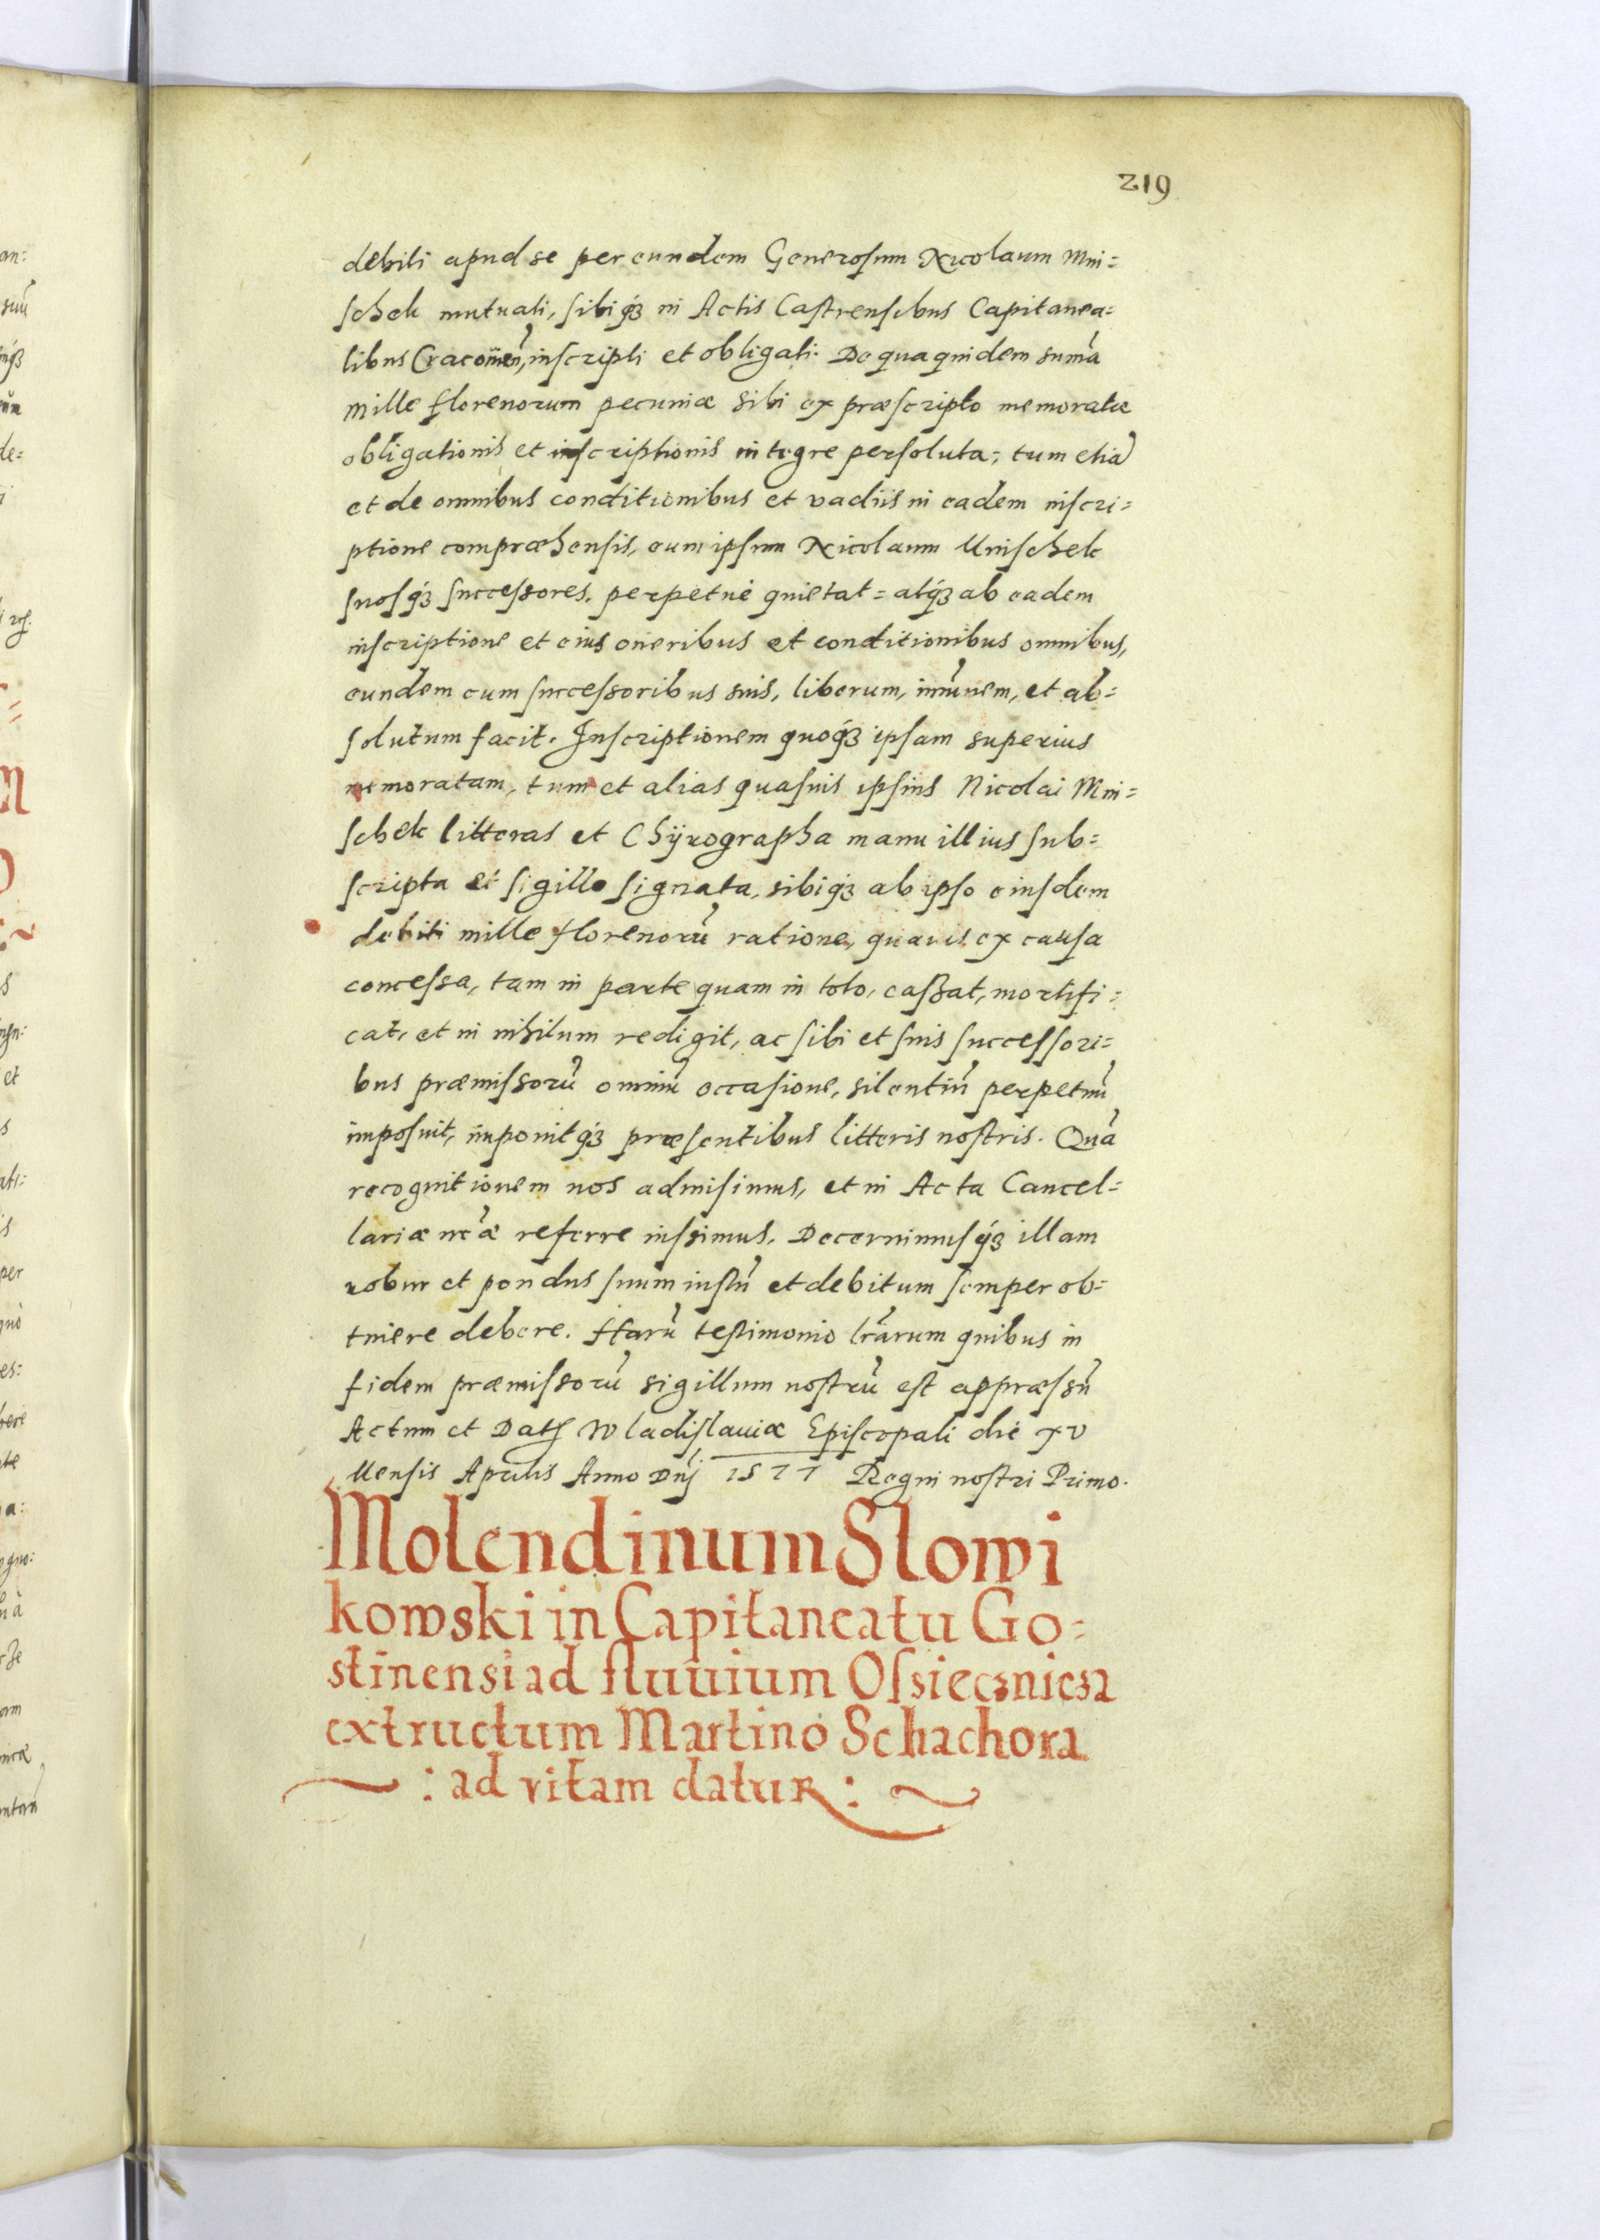 219
debiti apud se per eundem Generosum Nicolaum Mni=
schek mutuati, sibiq3 in Actis Castrensibus Capitanea=
libus Cracovieñ, inscripti et obligati. De qua quidem sumã
mille florenorum pecuniæ sibi ex præscripto memoratæ
obligationis et inscriptionis integre persoluta; tum etiã
et de omnibus conditionibus et vadiis in eadem inscri=
ptione compræhensis, eum ipsum Nicolaum Mnischek
suosq3 successores, perpetuè quietat= atq3 ab eadem
inscriptione et eius oneribus et conditionibus omnibus,
eundem cum successoribus suis, liberum, imũnem, et ab=
solutum facit. Inscriptionem quoq3 ipsam superius
memoratam, tum et alias quasvis ipsius Nicolai Mni=
schek litteras et Chÿrographa manu illius sub=
scripta et sigillo signata, sibiq3 ab ipso eiusdem
debiti mille florenorũ ratione, quavis ex causa
concessa, tam in parte quam in toto, casszat, mortifi=
cat, et in nihilum redigit, ac sibi et suis successori=
bus præmissorũ omniũ occasione, silentiũ perpetuũ
imposuit, imponitq3 præsentibus litteris nostris. Quã
recognitionem nos admisimus, et in Acta Cancel=
lariæ nr̃æ referre iussimus. Decernimusq3 illam
robur et pondus suum iustũ et debitum semper ob=
tinere debere. Harũ testimonio lr̃arum quibus in
fidem præmissorũ sigillum nostrũ est appræssũ
Actum et Dat Wladislaviæ Episcopali die XV
Mensis Aprilis Anno Dnj 1577 Regni nostri Primo.
Molendinum Slowi
kowski in Capitaneatu Go=
stinensi ad fluvium Ossiecznicza
extructum Martino Schachora
: ad vitam datur :